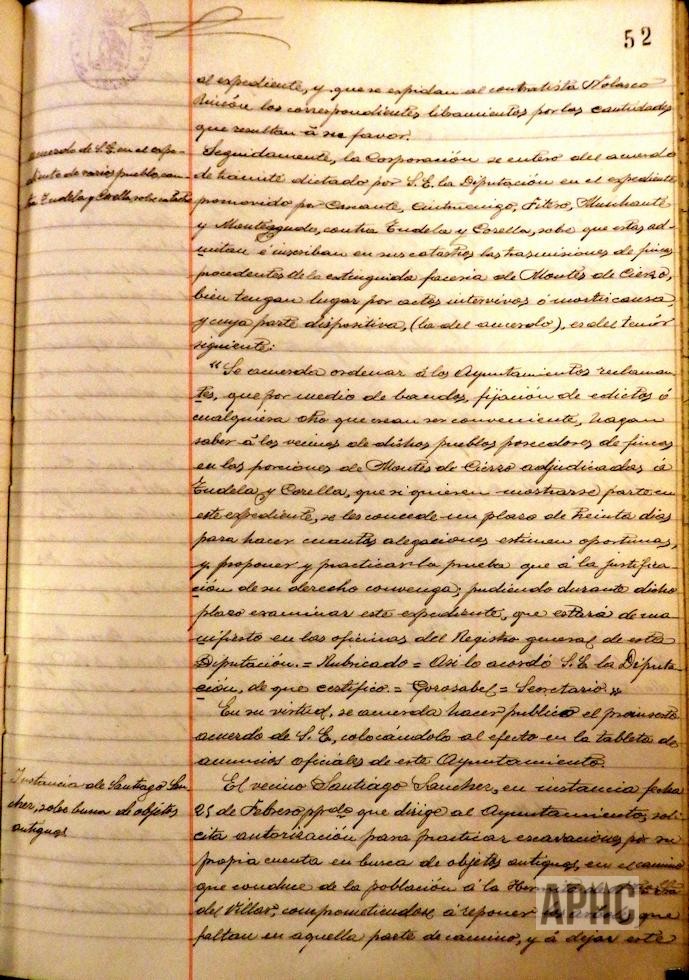 52
al expediente, y que se expidan al contratista Nolasco
Rincón los correspondientes libramientos por las cantidades
que resultan á su favor.
Acuerdo de S.E. en el expe-
diente de varios pueblos con-
tra Tudela y Corella, sobre catastro
Seguidamente, la Corporación se enteró del acuerdo
de trámite dictado por S.E. la Diputación en el expediente
promovido por Cascante, Cintruenigo, Fitero, Murchante
y Monteagudo, contra Tudela y Corella, sobre que estas ad-
mitan é inscriban en sus catastros las trasmisiones de fincas
procedentes de la extinguida facería de Montes de Cierzo,
bien tengan lugar por actos intervivos ó mortis causa
y cuya parte dispositiva, (la del acuerdo), es del tenor
siguiente:
"Se acuerda ordenar á los Ayuntamientos reclaman-
tes, que por medio de bandos, fijación de edictos ó
cualquiera otro que crean ser conveniente, hagan
saber á los vecinos de dichos pueblos poseedores de fincas
en las porciones de Montes de Cierzo adjudicadas á
Tudela y Corella, que si quieren mostrarse parte en
este expediente, se les concede un plazo de treinta dias
para hacer cuantas alegaciones estimen oportunas,
y proponer y practicar la prueba que á la justifica-
ción de su derecho convenga; pudiendo durante dicho
plazo examinar este expediente, que estará de ma-
nifiesto en las oficinas del Registro general de esta
Diputación. = Rubricado = Asi lo acordó S.E. la Diputa-
ción, de que certifico. = Gorosabel = Secretario."
En su virtud, se acuerda hacer publico el preinserto
acuerdo de S.E., colocándolo al efecto en la tableta de
anuncios oficiales de este Ayuntamiento.
Instancia de Santiago San-
chez, sobre busca de objetos
antiguos
El vecino Santiago Sanchez, en instancia fecha
25 de Febrero pp.do que dirige al Ayuntamiento, soli-
cita autorización para practicar escavaciones por su
propia cuenta en busca de objetos antiguos, en el camino
que conduce de la población á la Hermita
del Villar, comprometiendose á reponer que
faltan en aquella parte de camino, y á dejar este
APHC